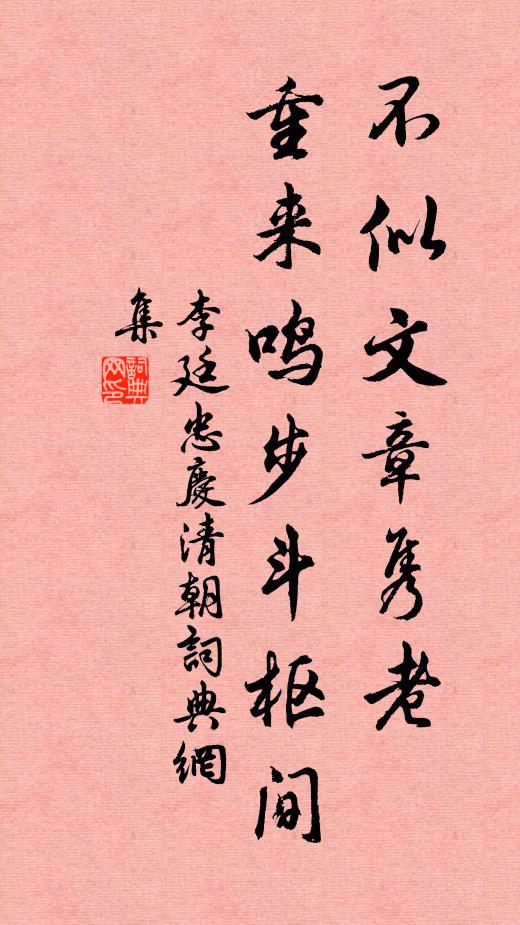 不似文章隽老
重来鸣步斗枢间
李廷忠慶清朝詞典網
集
詞典网印